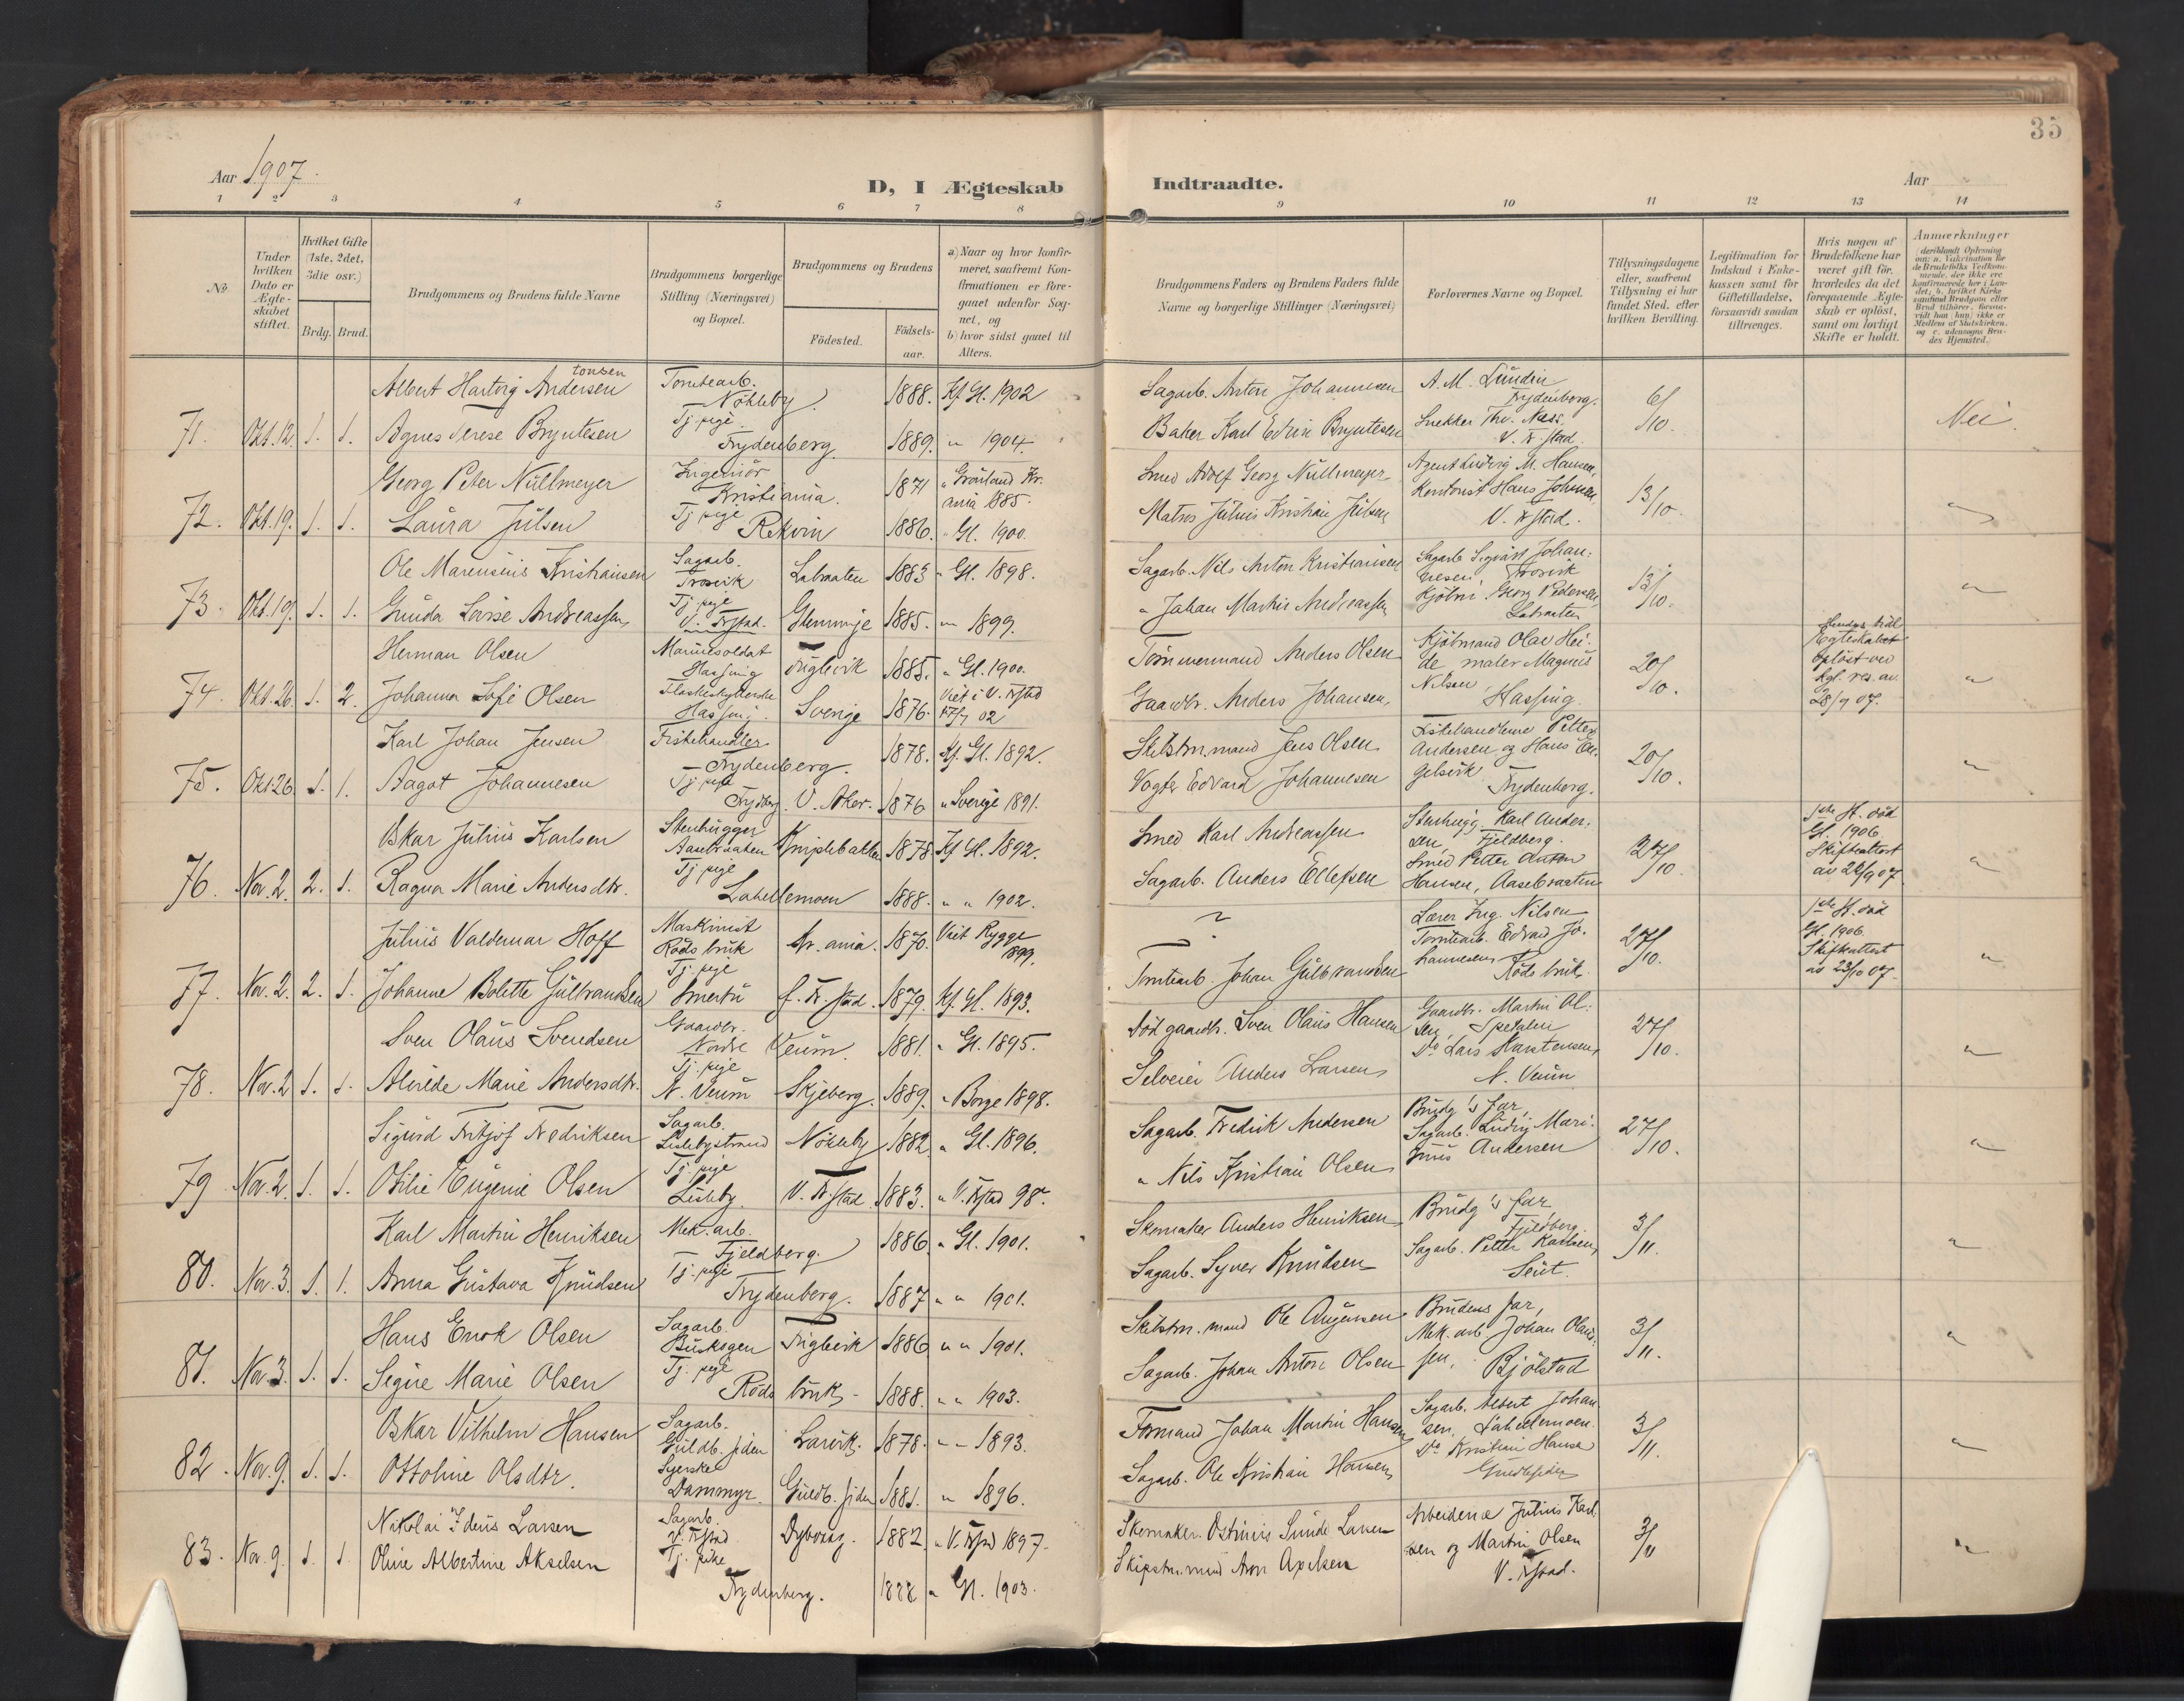 35
Aar 1907.
D, I Ægteskab Indtraadte.
Aar
1 2 3 4 5 6 7 8 9 10 11 12 13 14
№
Under hvilken Dato er Ægte-skabet stiftet.
Hvilket Gifte (1ste, 2det, 3die osv.)
Brdg. Brud.
Brudgommens og Brudens fulde Navne
Brudgommens borgerlige Stilling (Næringsvei) og Bopæl.
Brudgommens og Brudens
Fødested.
Fødsels-aar.
a) Naar og hvor konfir-meret, saafremt Kon-firmationen er fore-gaaet udenfor Sog-net, og b) hvor sidst gaaet til Alters.
Brudgommens Faders og Brudens Faders fulde Navne og borgerlige Stillinger (Næringsvei)
Forlovernes Navne og Bopæl.
Tillysningsdagene eller, saafremt Tillysning ei har fundet Sted, efter hvilken Bevilling.
Legitimation for Indskud i Enke-kassen samt for Giftetilladelse, forsaavidt saadan tiltrænges.
Hvis nogen af Brudefolkene har været gift før, hvorledes da det foregaaende Ægte-skab er opløst, samt om lovligt Skifte er holdt.
Anmærkninger
tonsen
Albert Hartvig Andersen Tomtearb. Nøkleby 1888. Kf. Gl. 1902 Sagarb. Anton Johannesen A. M. Lundin Trydenborg.
71. Okt. 12. 1. 1. Agnes Terese Bryntesen Tj. pige Trydenberg. 1889. " 1904. Baker Karl Edvin Bryntesen Snekker Thv. Næss. V. Fr.stad. 6/10. Nei
Georg Peter Nüllmeyer Ingeniør Kristiania. 1871 " Grønland Kr.ania 1885. Smed Adolf Georg Nüllmeyer Agent Ludvig M. Hansen,
72. Okt. 19. 1. 1. Laura Julsen Tj. pige Rekvin 1886. " Gl. 1900. Matros Julius Kristian Julsen Kontorist Hans Johnsen V. Fr.stad. 13/10. "
Ole Marensius Kristiansen Sagarb. Trosvik Labraaten 1883 " Gl. 1898. Sagarb. Nils Anton Kristiansen Sagarb. Sigvart Johan-nesen, Trosvik
73. Okt. 19. 1. 1. Gunda Lovise Andreassen Tj. pige V. Fr.stad. Glemminge 1885. " 1899. " Johan Martin Andreassen Kjøbm. Georg Pedersen, Labraaten 13/10. "
Herman Olsen Marinesoldat Hassing Trugleik 1885. " Gl. 1900. Tømmermand Anders Olsen Kjøbmand Olav Hei-de maler Magnus
74. Okt. 26. 1. 2. Johanna Sofie Olsen Hassing. Sverige 1876. Viet i V. Fr.stad 02 Gaardbr. Anders Johansen, Nilsen Hassing. 20/10. Hendes tidl. Egteskabet opløst ved Kgl. res. av 28/9 07. "
Karl Johan Jensen Fiskehandler Trydenberg. 1878. Kf. Gl. 1892. Skibstm.mand Jens Olsen Fiskehandlerne Petter Andersen og Hans En-
75. Okt 26. 1. 1. Aagot Johannesen Tj. pige Trydbg. V. Aker. 1876 " Sverige 1891. Vogter Edvard Johannesen gelsvik Trydenberg. 20/10. "
Oskar Julius Karlsen Stenhugger Aasebraaten Kniplebakken 1878 Kf Gl. 1892. Smed Karl Andreassen Stenhugg. Karl Ander-sen, Fjeldberg.
76. Nov. 2. 2. 1. Ragna Marie Andersdtr. Tj. pige Lahellemoen 1888. " " 1902. Sagarb. Anders Ellefsen Smed Petter Anton Hansen, Aasebraaten 27/10. 1ste H. død Gl. 1906. Skifteattest av 26/9 07 "
Julius Valdemar Hoff Maskinist Røds bruk Kr.ania. 1870. Viet Rygge 1899. ? Lærer Ing. Nilsen Tomtearb. Edvard Jo-
77. Nov. 2. 2. 1. Johanne Bolette Gulbrandsen Tj. pige Smertu f. Fr.stad. 1879. Kf. Gl. 1893. Tomtearb. Johan Gulbrandsen hannesen Røds bruk 27/10. 1ste H. død Gl. 1906 Skifteattest av 23/10 07. "
Sven Olaus Svendsen Gaardbr. Nordre Veum. 1881. " Gl. 1895. Død gaardbr. Sven Olaus Hansen Gaardbr. Martin Ol-sen, Spetalen
78. Nov. 2 1. 1. Alvilde Marie Andersdtr. Tj. pige N. Veum Skjeberg. 1889. " Borge 1898. Selveier Anders Larsen Do Lars Karstensen, N. Veum 27/10. "
Sigurd Fritjof Fredriksen Sagarb. Lislebystrand Nøkleby 1882 " Gl. 1896. Sagarb. Fredrik Andersen Brudg's far, Sagarb. Ludvig Mari-
79. Nov. 2. 1. 1. Otilie Eugenie Olsen Tj. pige Lisleby. V. Fr.stad. 1883. " V. Fr.stad 98. " Nils Kristian Olsen nius Andersen 27/10. "
Karl Martin Henriksen Mek. arb. Fjeldberg. 1886. " Gl. 1901. Skomaker Anders Henriksen Brudg's far, Fjeldberg.
80. Nov. 3. 1. 1. Anna Gustava Knudsen Tj. pige Trydenberg. 1887 " " 1901. Sagarb. Syver Knudsen Sagarb. Petter Karlsen, Seut. 3/11. "
Hans Enok Olsen Sagarb. Buskogen Trugleik 1886 " " 1901. Skibstm. mand Ole Augensen Brudens far,
81. Nov. 3. 1. 1. Signe Marie Olsen Tj. pige Røds bruk. 1888. " " 1903. Sagarb. Johan Anton Olsen Mek. arb. Johan Olaus-sen, Bjølstad 3/11. "
Oskar Vilhelm Hansen Sagarb. Guldb. siden Larvik. 1878. " " 1893. Formand Johan Martin Hansen Sagarb. Albert Johan-sen, Lahellemoen.
82. Nov. 9. 1. 1. Ottoline Olsdtr. Syerske Dammyr. Guldb. siden 1881. " 1896. Sagarb. Ole Kristian Hansen Do Kristian Hansen Guldbsiden 3/11. "
Nikolai Ideus Larsen Sagarb. V. Fr.stad Dybvaag. 1882. " V. Fr.stad 1897. Skomaker. Larsen Arbeiderne Julius Karl-
83. Nov. 9. 1. 1. Oline Albertine Akselsen Tj. pike Trydenberg. 1888 " Gl. 1903. Skipstm.mand Aron Axelsen sen og Martin Olsen V. Fr.stad. 3/11 "